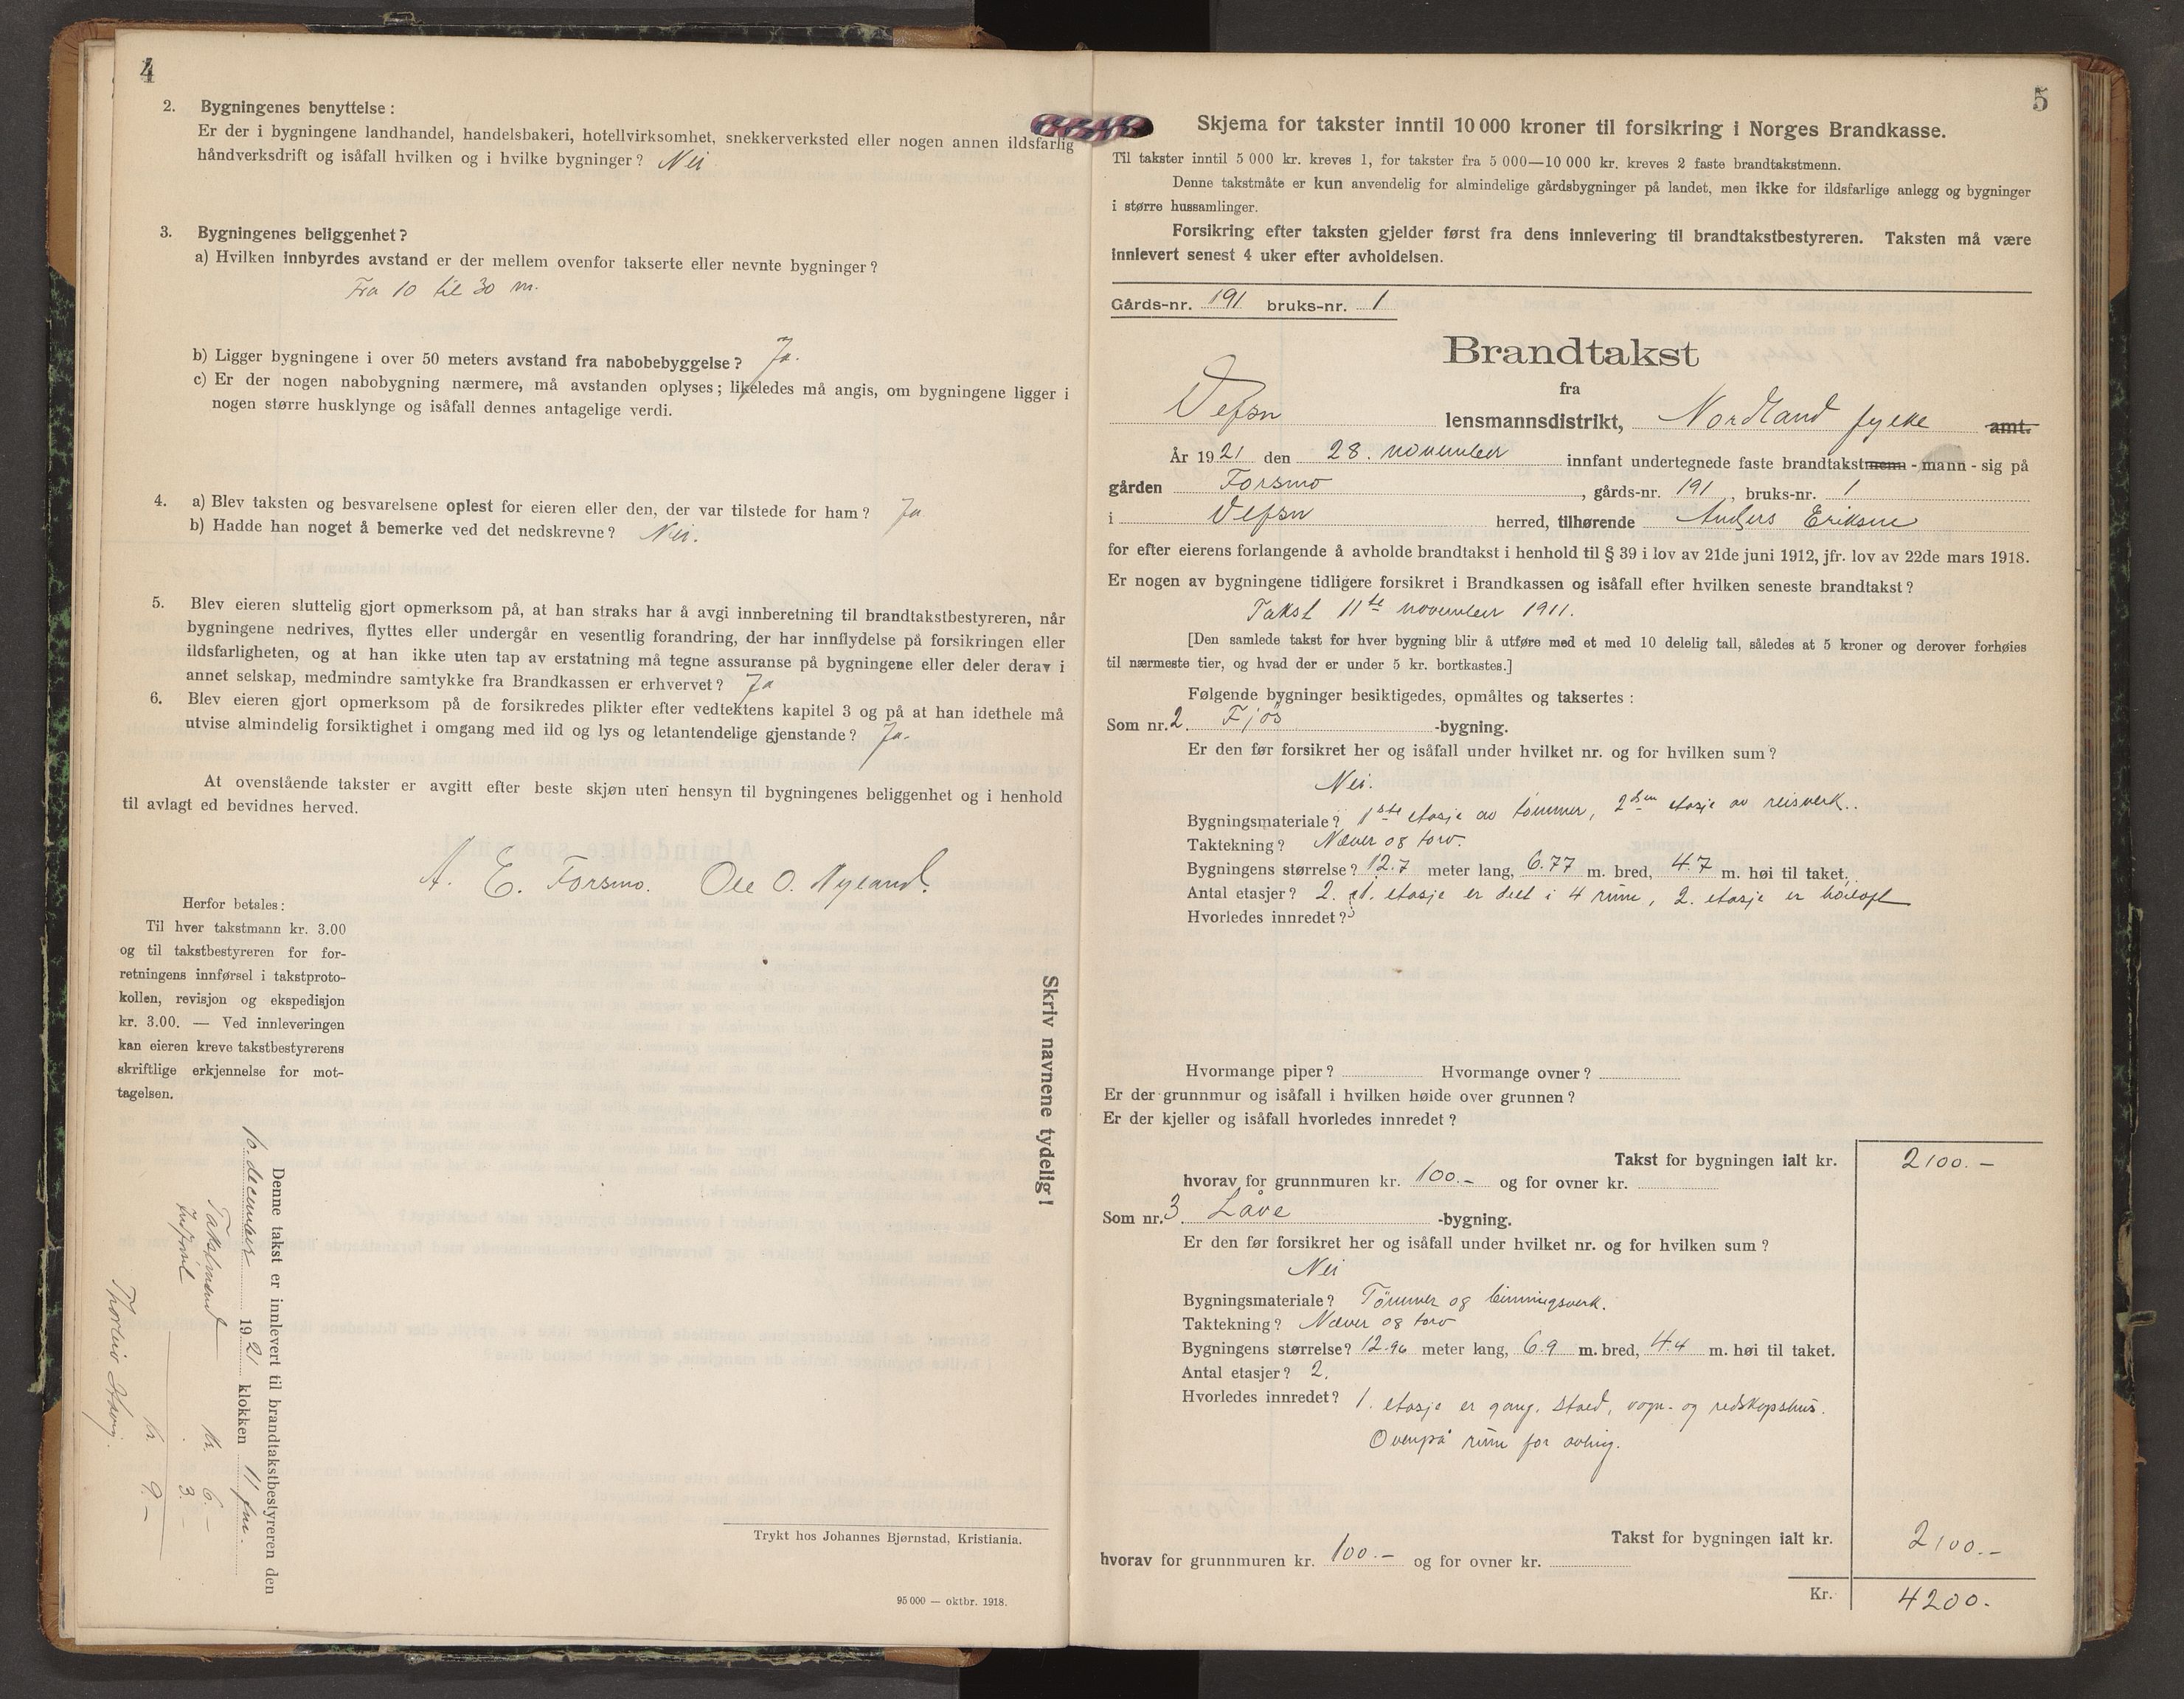 4
2. Bygningenes benyttelse :
Er der i bygningene landhandel, handelsbakeri, hotellvirksomhet, snekkerverksted eller nogen annen ildsfarlig
håndverksdrift og isåfall hvilken og i hvilke bygninger? Nei
3. Bygningenes beliggenhet?
a) Hvilken innbyrdes avstand er der mellem ovenfor takserte eller nevnte bygninger?
Fra 10 til 30 m.
b) Ligger bygningene i over 50 meters avstand fra nabobebyggelse? Ja.
c) Er der nogen nabobygning nærmere, må avstanden oplyses; likeledes må angis, om bygningene ligger i
nogen større husklynge og isåfall dennes antagelige verdi.
4. a) Blev taksten og besvarelsene oplest for eieren eller den, der var tilstede for ham? Ja
b) Hadde han noget å bemerke ved det nedskrevne? Nei.
5. Blev eieren sluttelig gjort opmerksom på, at han straks har å avgi innberetning til brandtakstbestyreren, når
bygningene nedrives, flyttes eller undergår en vesentlig forandring, der har innflydelse på forsikringen eller
ildsfarligheten, og at han ikke uten tap av erstatning må tegne assuranse på bygningene eller deler derav i
annet selskap, medmindre samtykke fra Brandkassen er erhvervet? Ja
6. Blev eieren gjort opmerksom på de forsikredes plikter efter vedtektens kapitel 3 og på at han idethele må
utvise almindelig forsiktighet i omgang med ild og lys og letantendelige gjenstande? Ja.
At ovenstående takster er avgitt efter beste skjøn uten hensyn til bygningenes beliggenhet og i henhold
til avlagt ed bevidnes herved.
A. E. Forsmo. Ole O. Nyland.
Herfor betales:
Til hver takstmann kr. 3.00
og til takstbestyreren for for-
retningens innførsel i takstproto-
kollen, revisjon og ekspedisjon
kr. 3.00. — Ved innleveringen
kan eieren kreve takstbestyrerens
skriftlige erkjennelse for mot-
tagelsen.
Skriv navnene tydelig!
Denne takst er innlevert til brandtakstbestyreren den
10. december 1921 klokken 11 fm.
Takstmænd kr. 6.–
Indførsel 3.–
kr. 9.–
Trykt hos Johannes Bjørnstad, Kristiania.
95 000 — oktbr. 1918.
5
Skjema for takster inntil 10 000 kroner til forsikring i Norges Brandkasse.
Til takster inntil 5 000 kr. kreves 1, for takster fra 5 000—10 000 kr. kreves 2 faste brandtakstmenn.
Denne takstmåte er kun anvendelig for almindelige gårdsbygninger på landet, men ikke for ildsfarlige anlegg og bygninger
i større hussamlinger.
Forsikring efter taksten gjelder først fra dens innlevering til brandtakstbestyreren. Taksten må være
innlevert senest 4 uker efter avholdelsen.
Gårds-nr. 191 bruks-nr. 1
Brandtakst
fra
Vefsn lensmannsdistrikt, Nordland fylke amt.
År 1921 den 28. november innfant undertegnede faste brandtakstmenn - mann - sig på
gården Forsmo, gårds-nr. 191, bruks-nr. 1
i Vefsn herred, tilhørende Anders Eriksen
for efter eierens forlangende å avholde brandtakst i henhold til § 39 i lov av 21de juni 1912, jfr. lov av 22de mars 1918.
Er nogen av bygningene tidligere forsikret i Brandkassen og isåfall efter hvilken seneste brandtakst?
Takst 11te november 1911.
[Den samlede takst for hver bygning blir å utføre med et med 10 delelig tall, således at 5 kroner og derover forhøies
til nærmeste tier, og hvad der er under 5 kr. bortkastes.]
Følgende bygninger besiktigedes, opmåltes og taksertes :
Som nr. 2 Fjøs -bygning.
Er den før forsikret her og isåfall under hvilket nr. og for hvilken sum?
Nei.
Bygningsmateriale? 1ste etasje av tømmer, 2den etasje av reisverk..
Taktekning? Næver og torv.
Bygningens størrelse? 12.7 meter lang, 6.77 m. bred, 4.7 m. høi til taket.
Antal etasjer? 2. 1. etasje er delt i 4 rum, 2. etasje er høiloft
Hvorledes innredet?
Hvormange piper? Hvormange ovner?
Er der grunnmur og isåfall i hvilken høide over grunnen?
Er der kjeller og isåfall hvorledes innredet?
Takst for bygningen ialt kr. 2100.–
hvorav for grunnmuren kr. 100.– og for ovner kr.
Som nr. 3 Låve -bygning.
Er den før forsikret her og isåfall under hvilket nr. og for hvilken sum?
Nei
Bygningsmateriale? Tømmer og binningsverk.
Taktekning? Næver og torv
Bygningens størrelse? 12.96 meter lang, 6.9 m. bred, 4.4 m. høi til taket.
Antal etasjer? 2.
Hvorledes innredet? 1. etasje er gang, stald, vogn- og redskapshus.
Ovenpå rum for avling.
Takst for bygningen ialt kr. 2100.–
hvorav for grunnmuren kr. 100.– og for ovner kr.
Kr. 4200.